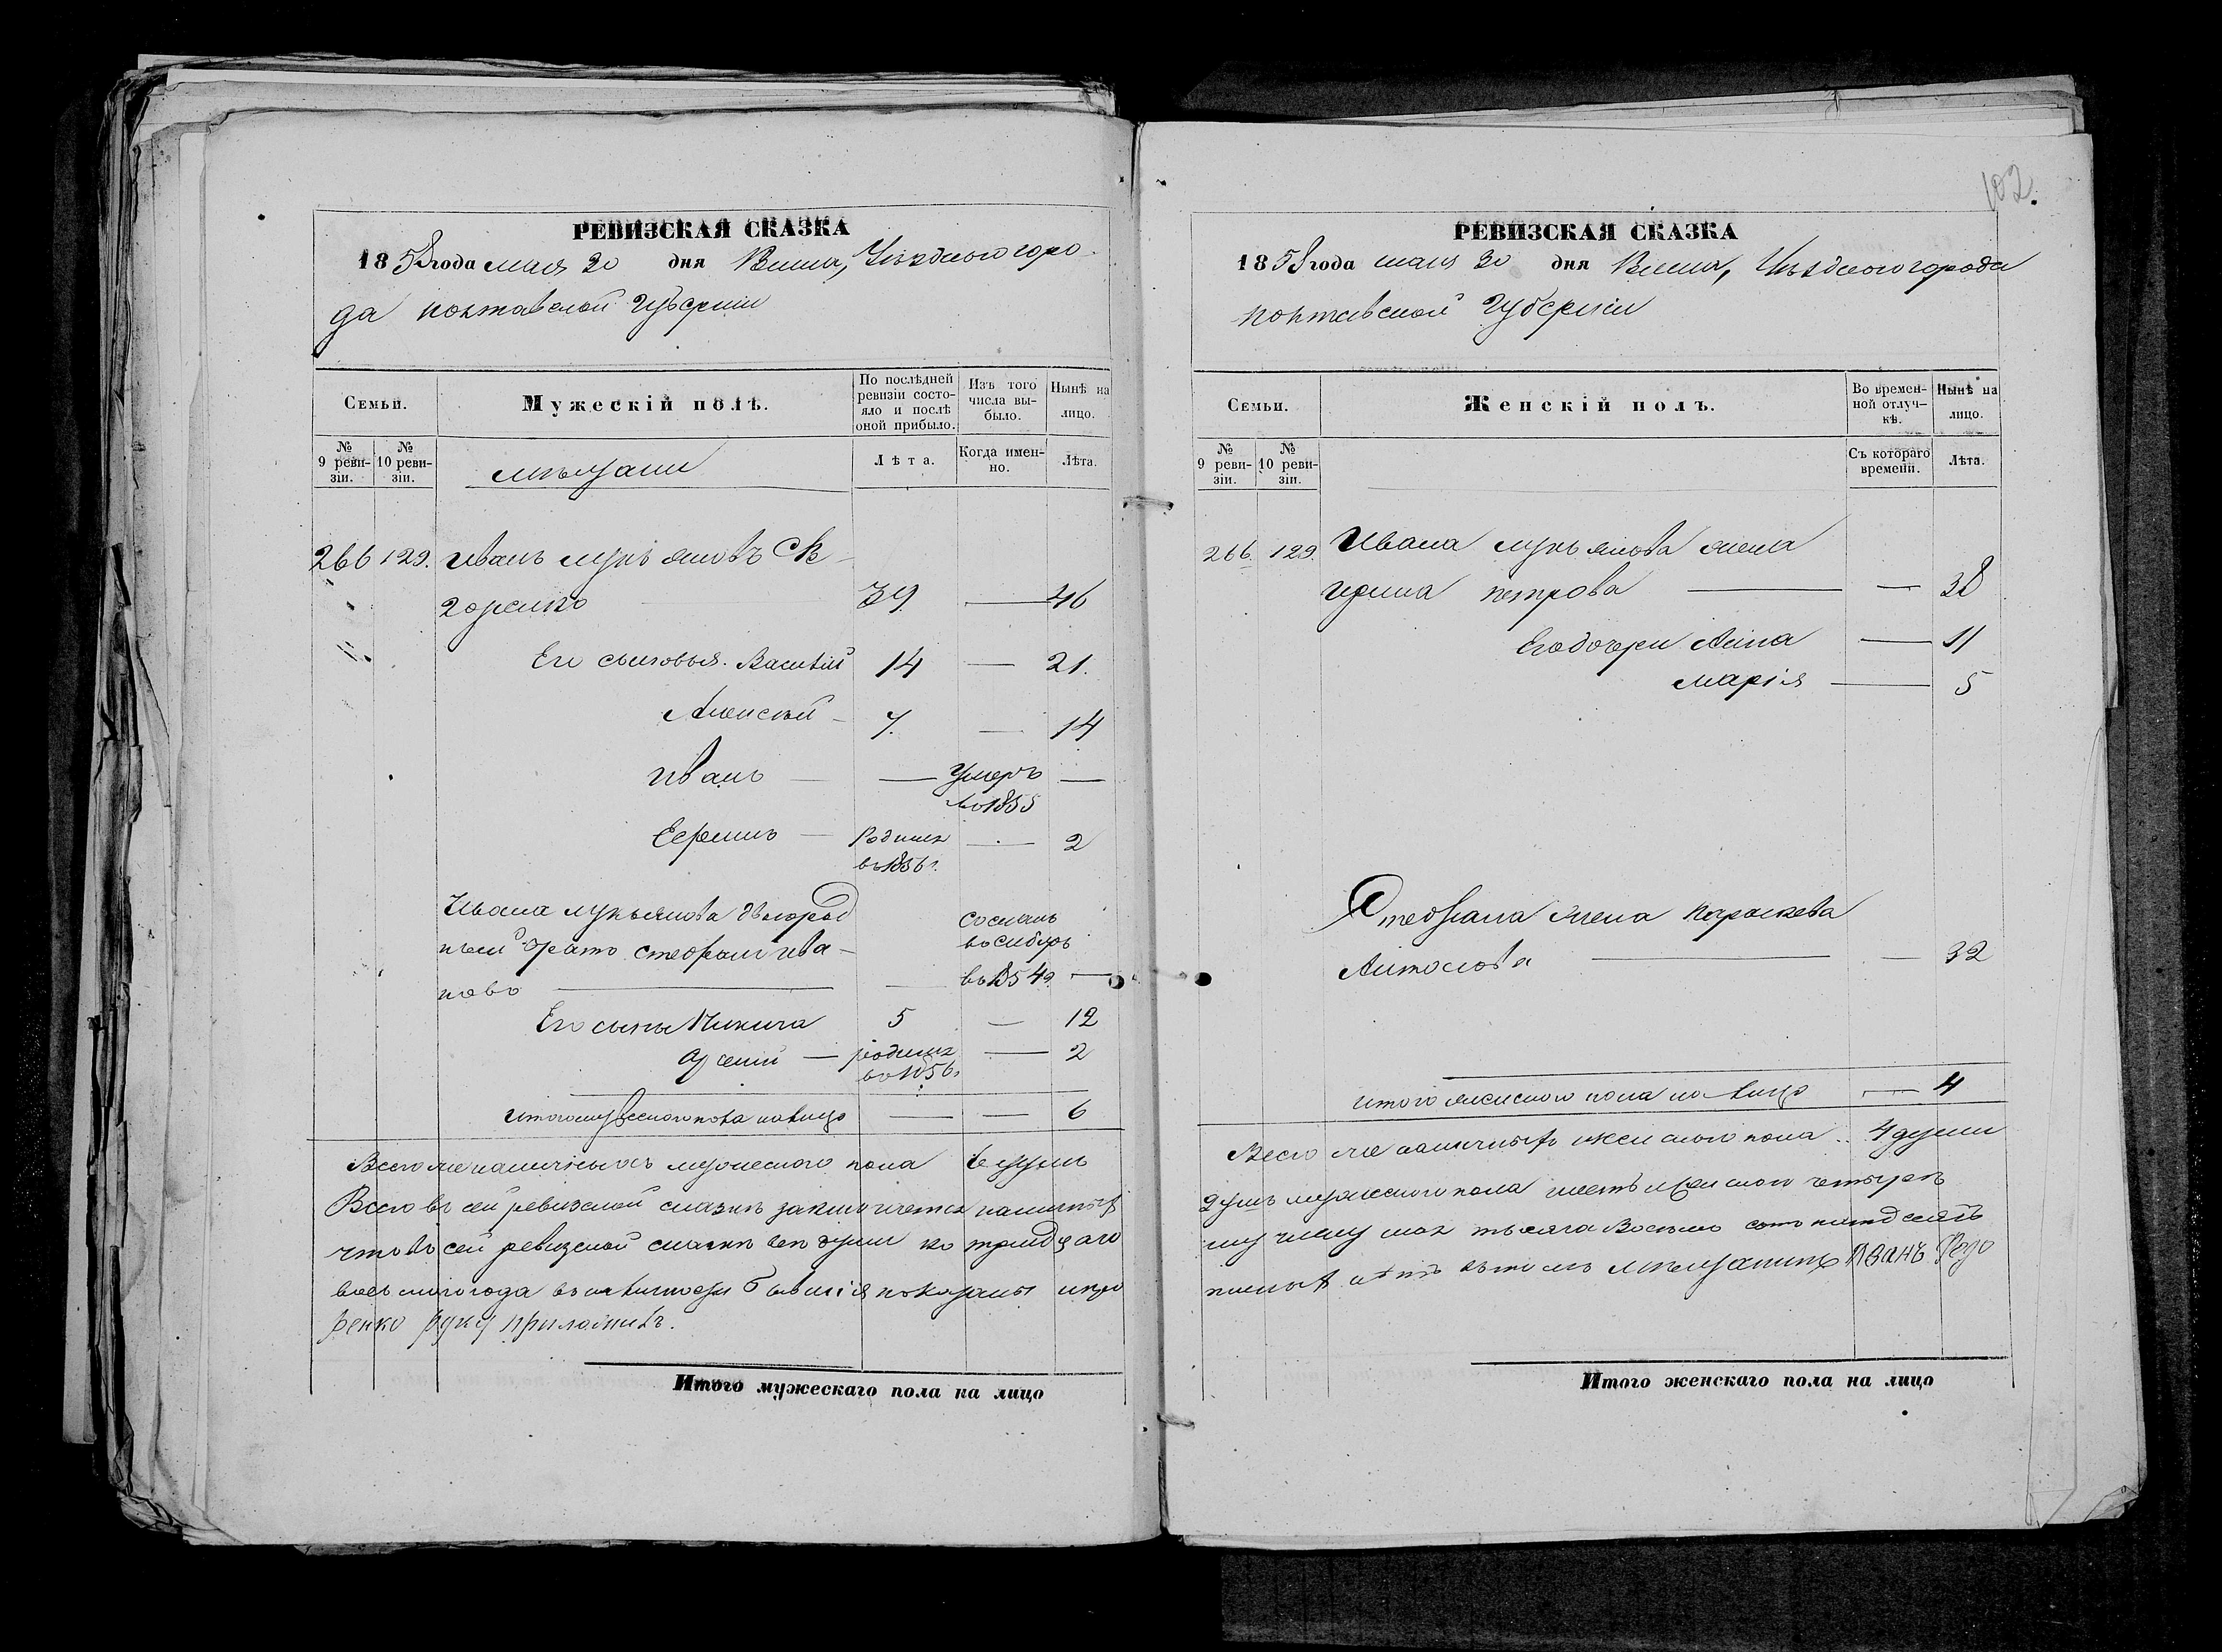 РЕВИЗСКАЯ СКАЗКА
1858 года мая 30 дня Уѣзднаго горо-
да полтавской губерніи
Семьи.
Мужескій полъ.
По послѣдней ревизіи состояло и послѣ оной прибыло.
Изъ того числа выбыло.
Нынѣ на лицо.
№ 9 ревизіи.
№ 10 ревизіи.
мѣщани
Лѣта.
Когда именно.
Лѣта.
266 129. Иванъ лукъяновъ
39 — 46
Его сыновья. Василій 14 — 21.
Алексѣй — 7. — 14
Иванъ — — Умеръ —
въ 1855
Ефримъ — Родился — 2
въ 1856 г.
Ивана лукъянова двоюрод
ный братъ стефанъ ива- сосланъ
въ сибирь
новъ — — въ 1854 г. —
Его сыны Никита 5 — 12
Арсеній — родился — 2
въ 1856 г.
итого мужескаго пола на лицо — — 6
Всего же наличныхъ мужескаго пола 6 душъ
Всего въ сей ревизской сказкѣ заключается наличныхъ
что въ сей ревизской сказкѣ всѣ души по тридцато
восьмого года въ наличности бывшія показаны
ренко руку приложилъ.
Итого мужескаго пола на лицо
102.
РЕВИЗСКАЯ СКАЗКА
1858 года мая 30 дня Уѣзднаго города
полтавской губерніи
Семьи.
Женскій полъ.
Во временной отлучкѣ.
Нынѣ на лицо.
№ 9 ревизіи.
№ 10 ревизіи.
Съ котораго времени.
Лѣта.
266. 129. Ивана лукъянова жена
Ирина петрова — — 38
Его дочери Анна — 11
марія — 5
Стефана жена параскева
Антонова — — 32
итого женскаго пола на лицо — 4
Всего же наличныхъ женскаго пола .. 4 души
душъ мужескаго пола шесть женскаго четыре
тысяча восемь сотъ пятдесятъ
мѣщанинъ Иванъ Федо
Итого женскаго пола на лицо